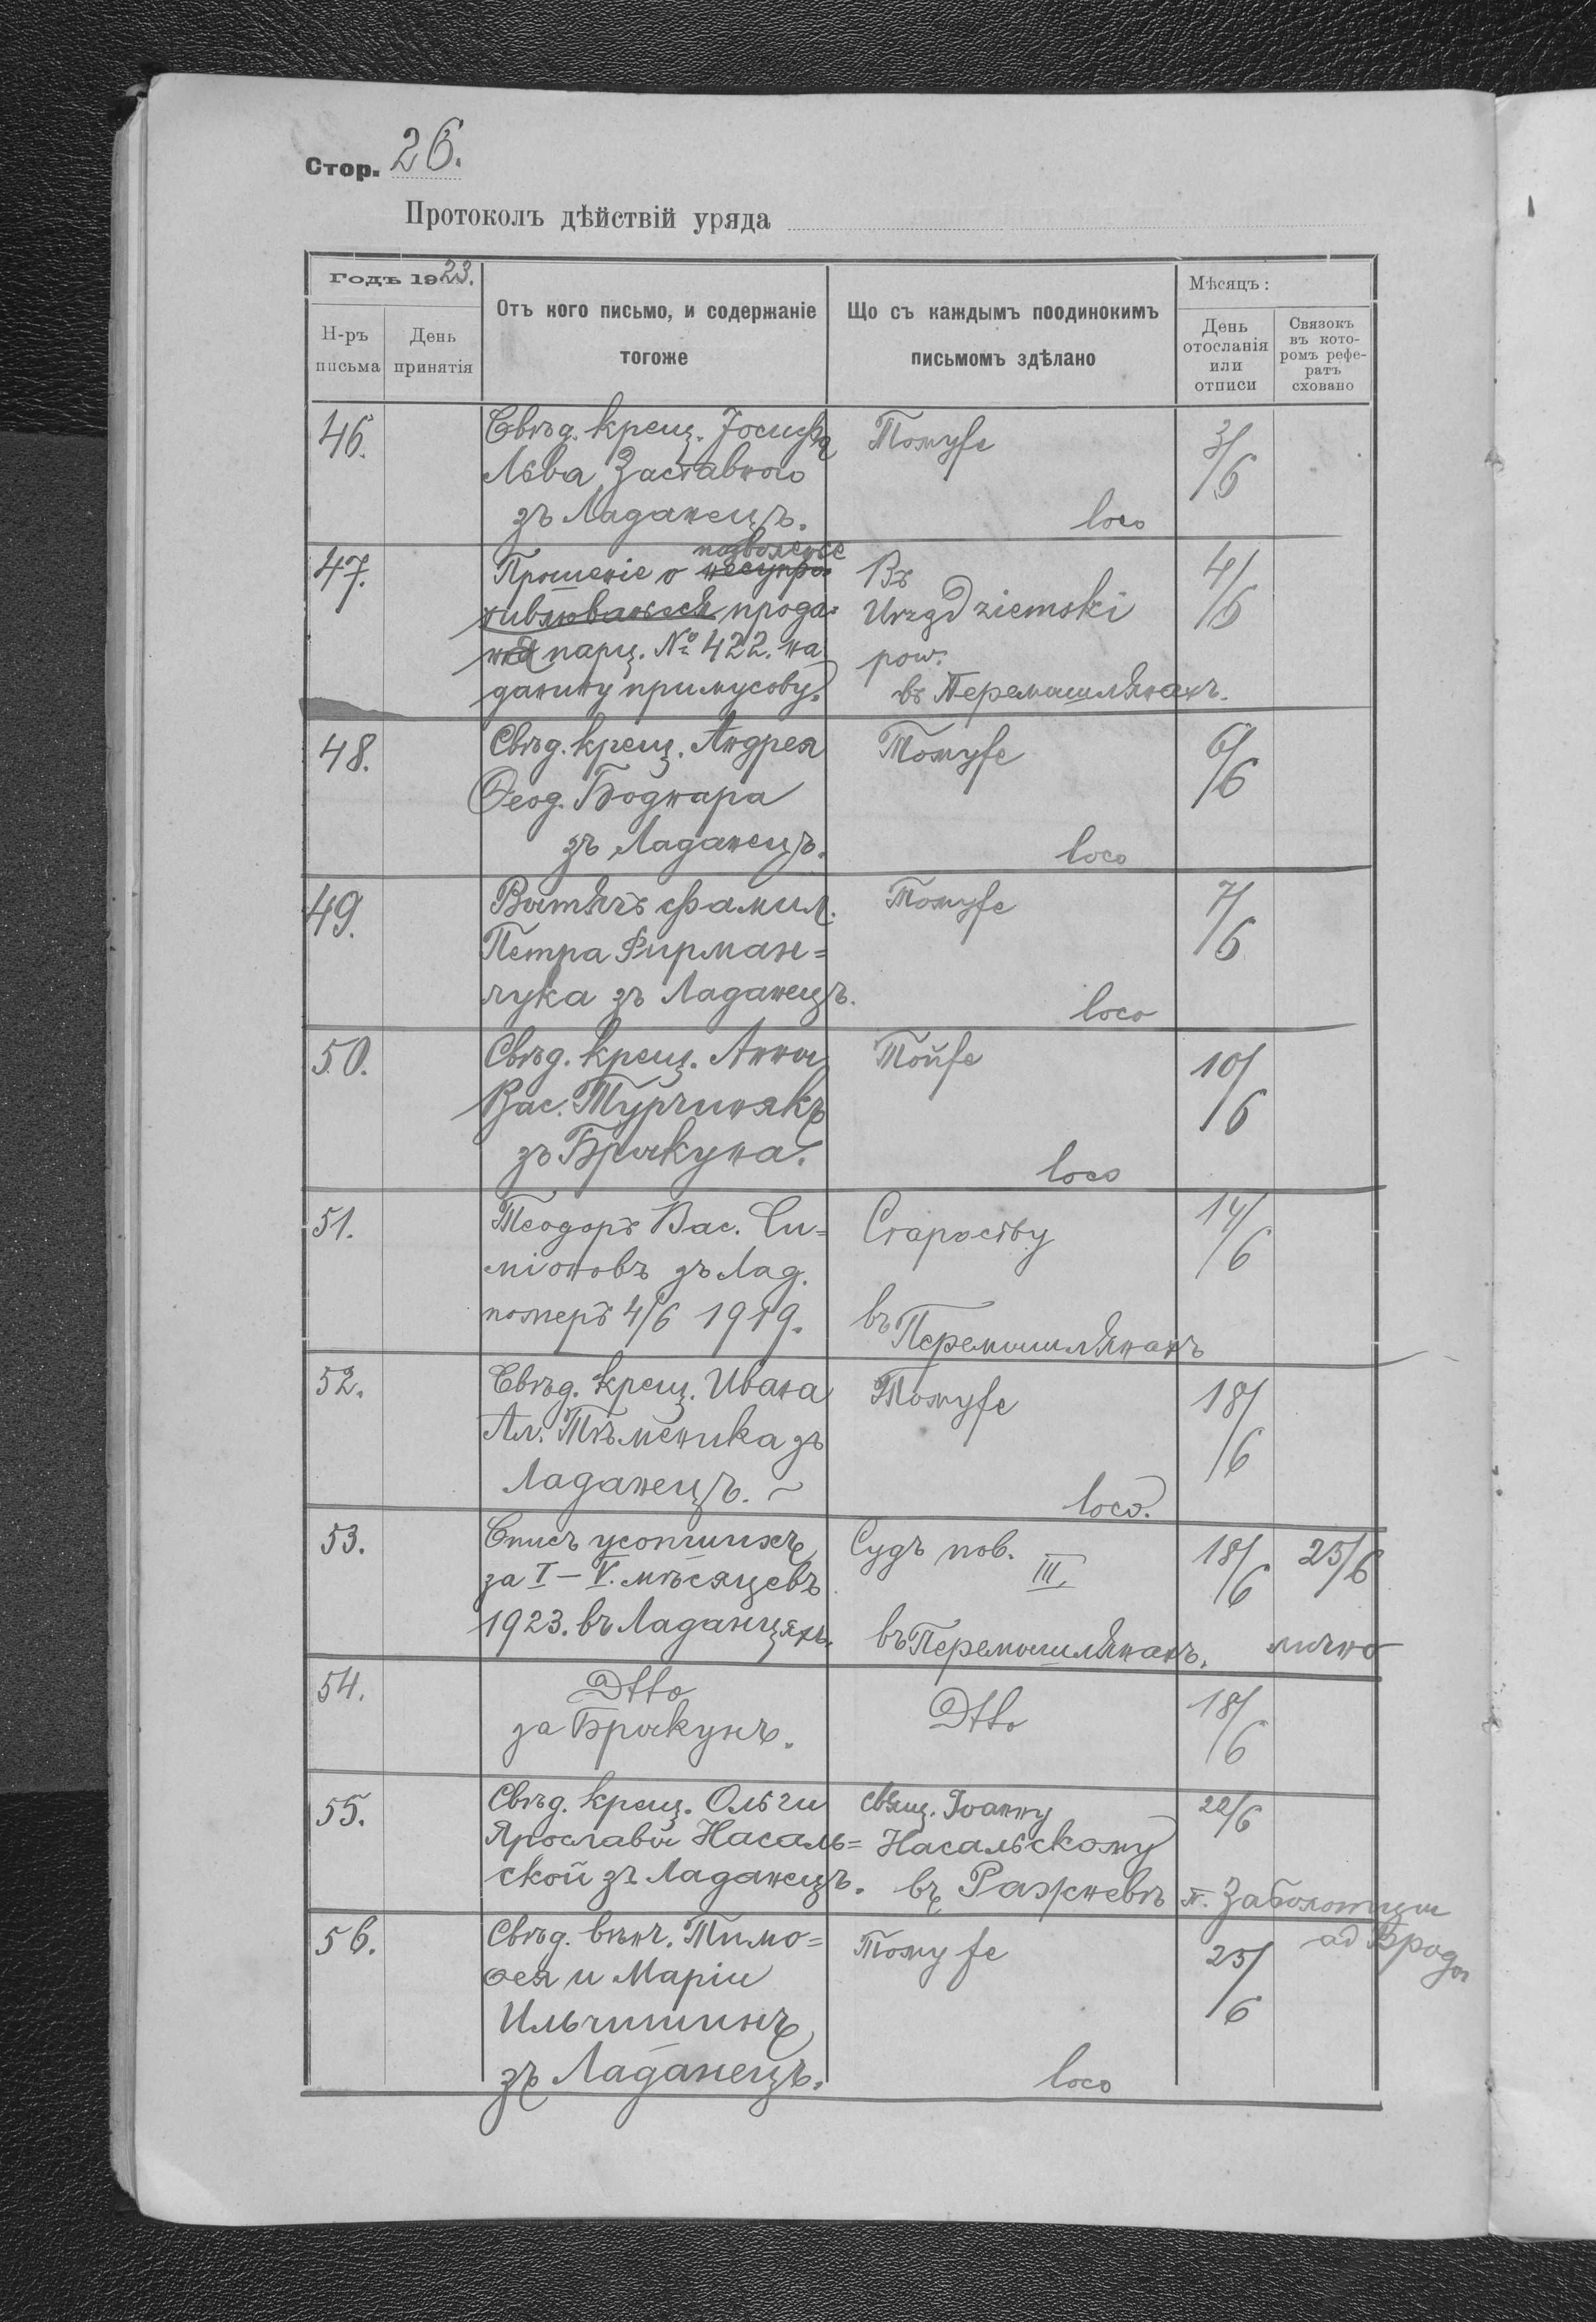 Стор. 26.
Протоколъ дѣйствій уряда
Годъ 1923.
Н-ръ письма
День принятія
Отъ кого письмо, и содержаніе
тогоже
Що съ каждымъ поодинокимъ
письмомъ здѣлано
Мѣсяцъ:
День
отосланія
или
отписи
Связокъ
въ кото-
ромъ рефе-
ратъ
сховано
46.
Свѣд. крещ. Іосифа
Льва Заставного
зъ Ладанецъ.
Томуже
loco
3/6
47.
позволеніе
Прошеніе о
прода=
парц. № 422. на
данину примусову.
Въ
Urząd ziemski
pow.
въ Перемышлянахъ.
4/6
48.
Свѣд. крещ. Андрея
Ѳеод. Боднара
зъ Ладанецъ.
Томуже
loco
6/6
49.
Вытягъ фамил.
Петра Фирман=
чука зъ Ладанецъ.
Томуже
loco
7/6
50.
Свѣд. крещ. Анны
Вас. Турчинякъ
зъ Брыкуна.
Тойже
loco
10/6
51.
Теодоръ Вас. Си=
міоновъ зъ Лад.
померъ 4/6 1919.
Староству
въ Перемышлянахъ
14/6
52.
Свѣд. крещ. Ивана
Ал. зъ
Ладанецъ.
Томуже
loco.
18/6
53.
Списъ усопшихъ
за I – V. мѣсяцевъ
1923. въ Ладанцяхъ.
Судъ пов.
III.
въ Перемышлянахъ.
18/6
25/6
лично
54.
Dtto
за Брыкунъ.
Dtto
18/6
55.
Свѣд. крещ. Ольги
Ярославы Насаль=
ской зъ Ладанецъ.
свящ. Іоанну
Насальскому
въ Ражневѣ п. Заболотци
ad Броды
22/6
56.
Свѣд. вѣнч. Тимо=
ѳея и Маріи
Ильчишинъ
зъ Ладанецъ.
Томуже
loco
25/6